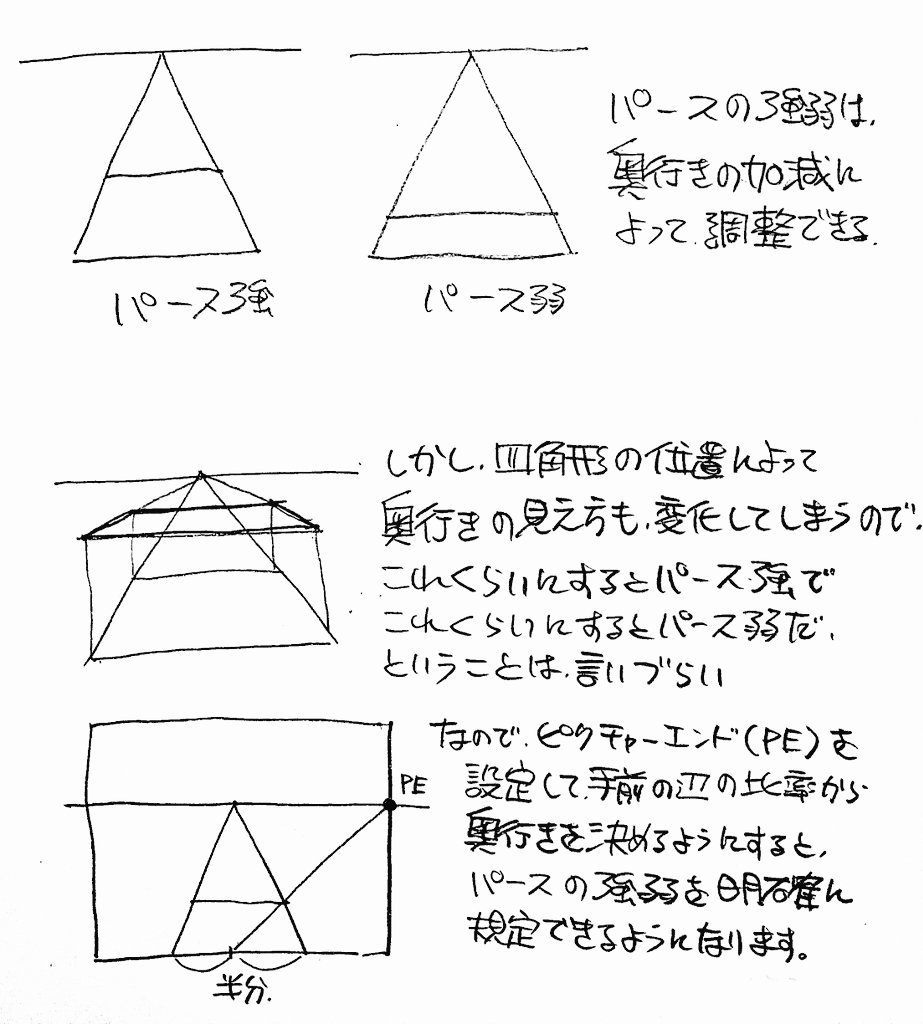 パースの強弱は、
奥行きの加減に
よって、調整できる。
パース強
パース弱
しかし、四角形の位置によって
奥行きの見え方も、変化してしまうので、
これくらいにするとパース強で
これくらいにするとパース弱だ、
ということは、言いづらい
なので、ピクチャーエンド(PE)を
設定して、手前の辺の比率から
奥行きを決めるようにすると、
パースの強弱を明確に
規定できるようになります。
PE
半分.